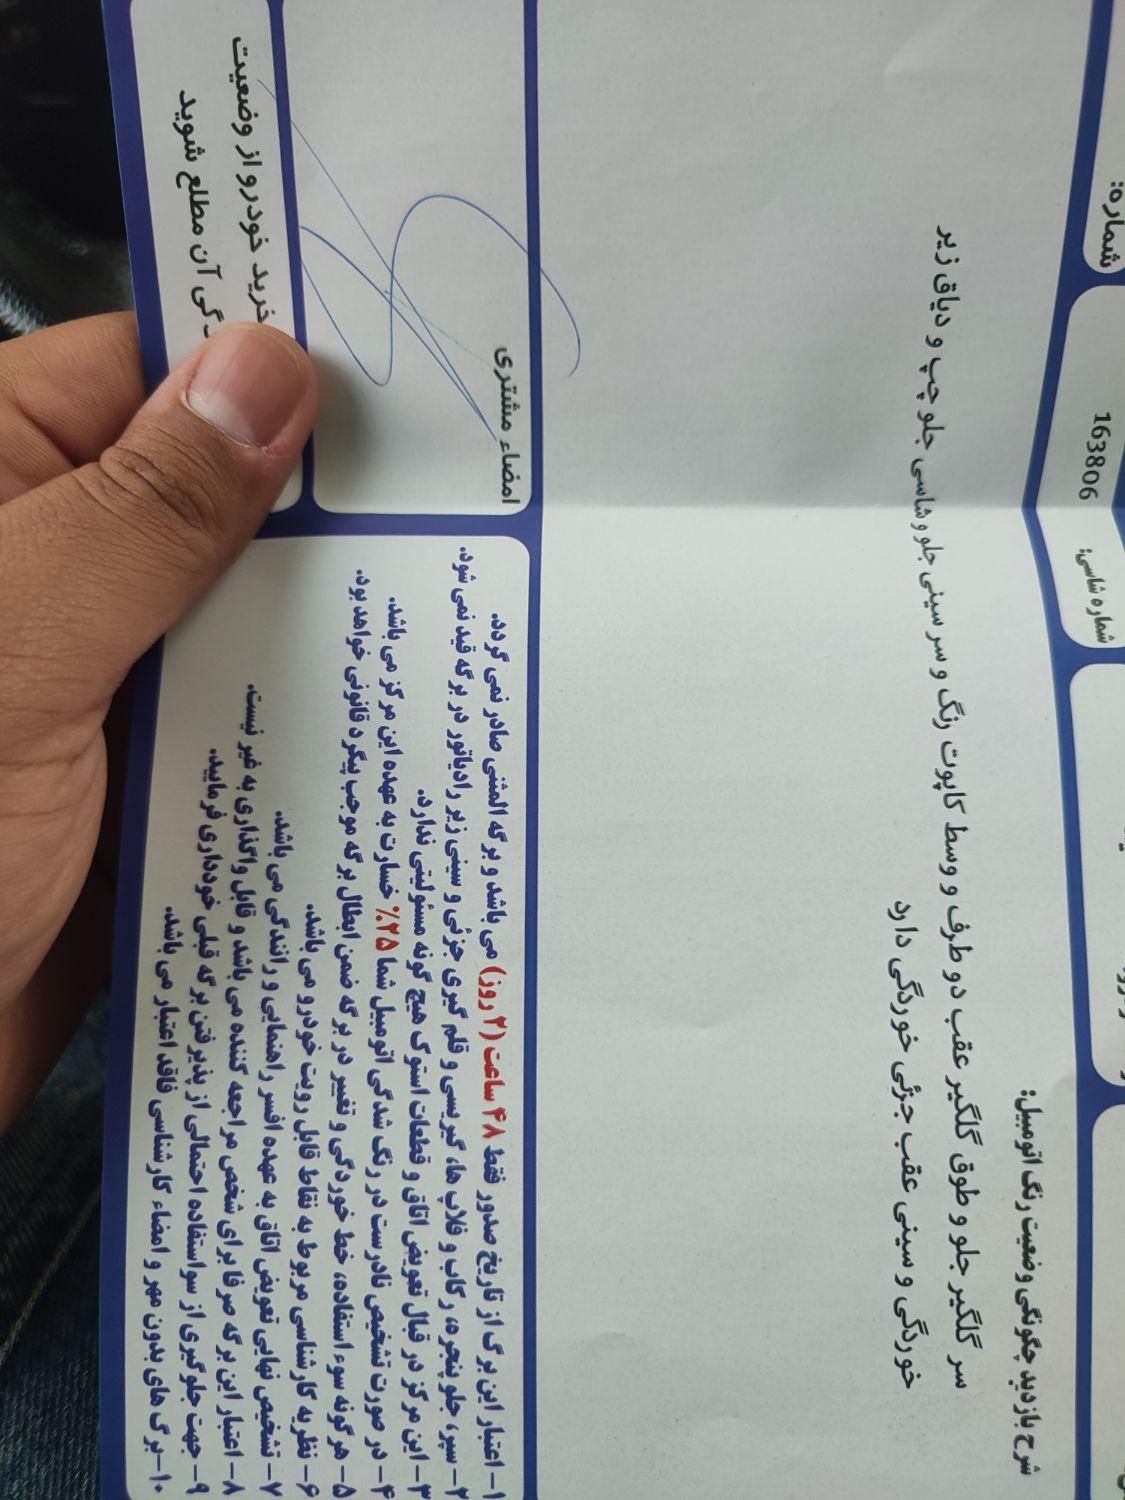 شماره:
163806
شماره شاسی:
شرح بازدید چگونگی وضعیت رنگ اتومبیل:
سر گلگیر جلو و طوق گلگیر عقب دو طرف و وسط کاپوت رنگ و سر سینی جلو و شاسی جلو چپ و دیاق زیر
خوردگی و سینی عقب جزئی خوردگی دارد
امضاء مشتری
۱- اعتبار این برگ از تاریخ صدور فقط ۴۸ ساعت (۲ روز) می باشد و برگه المثنی صادر نمی گردد.
۲- سپر، جلو پنجره، رکاب و فلاپ ها، گیریسی و قلم گیری جزئی و سینی زیر رادیاتور در برگه قید نمی شود.
۳- این مرکز در قبال تعویض اتاق و قطعات استوک هیچ گونه مسئولیتی ندارد.
۴- در صورت تشخیص نادرست در رنگ شدگی اتومبیل شما ۲۵٪ خسارت به عهده این مرکز می باشد.
۵- هرگونه سوء استفاده، خط خوردگی و تغییر در برگه ضمن ابطال برگه موجب پیگرد قانونی خواهد بود.
۶- نظریه کارشناسی مربوط به نقاط قابل رویت خودرو می باشد.
۷- تشخیص نهایی تعویض اتاق به عهده افسر راهنمایی و رانندگی می باشد.
۸- اعتبار این برگه صرفا برای شخص مراجعه کننده می باشد و قابل واگذاری به غیر نیست.
۹- جهت جلوگیری از سواستفاده احتمالی از پذیرفتن برگه قبلی خودداری فرمایید.
۱۰- برگ های بدون مهر و امضاء کارشناسی فاقد اعتبار می باشد.
خرید خودرو از وضعیت
آن مطلع شوید